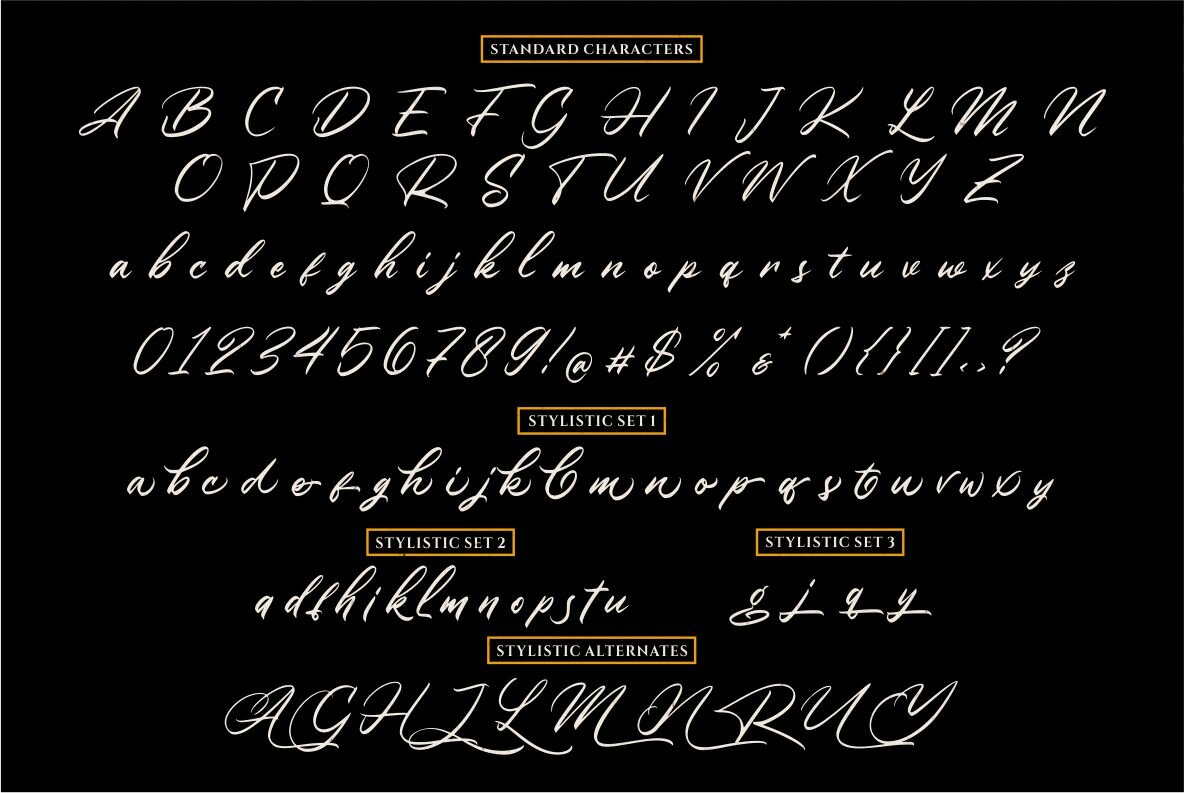 STANDARD CHARACTERS
A B C D E F G H I J K L M N
O P Q R S T U V W X Y Z
a b c d e f g h i j k l m n o p q r s t u v w x y z
0 1 2 3 4 5 6 7 8 9 ! @ # $ % & * ( ) { } [ ] , . ?
STYLISTIC SET 1
a b c d e f g h i j k l m n o p q s t u v w x y
STYLISTIC SET 2
STYLISTIC SET 3
a d f h i k l m n o p s t u
g j q y
STYLISTIC ALTERNATES
A G H J L M N R U Y